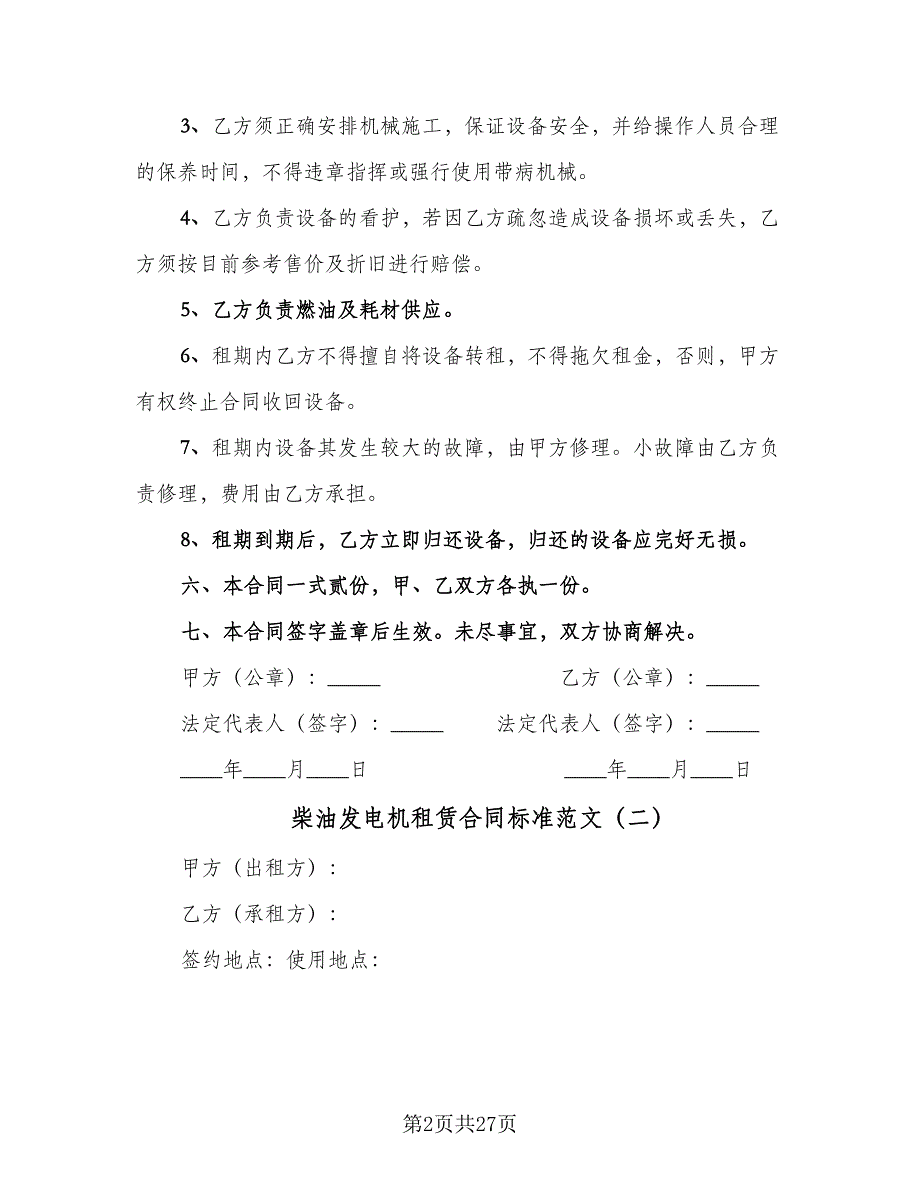 3、乙方须正确安排机械施工，保证设备安全，并给操作人员合理
的保养时间，不得违章指挥或强行使用带病机械。
4、乙方负责设备的看护，若因乙方疏忽造成设备损坏或丢失，乙
方须按目前参考售价及折旧进行赔偿。
5、乙方负责燃油及耗材供应。
6、租期内乙方不得擅自将设备转租，不得拖欠租金，否则，甲方
有权终止合同收回设备。
7、租期内设备其发生较大的故障，由甲方修理。小故障由乙方负
责修理，费用由乙方承担。
8、租期到期后，乙方立即归还设备，归还的设备应完好无损。
六、本合同一式贰份，甲、乙双方各执一份。
七、本合同签字盖章后生效。未尽事宜，双方协商解决。
甲方（公章）：_____ 乙方（公章）：_____
法定代表人（签字）：_____ 法定代表人（签字）：_____
____年____月____日 ____年____月____日
柴油发电机租赁合同标准范文（二）
甲方（出租方）：
乙方（承租方）：
签约地点：使用地点：
第2页共27页